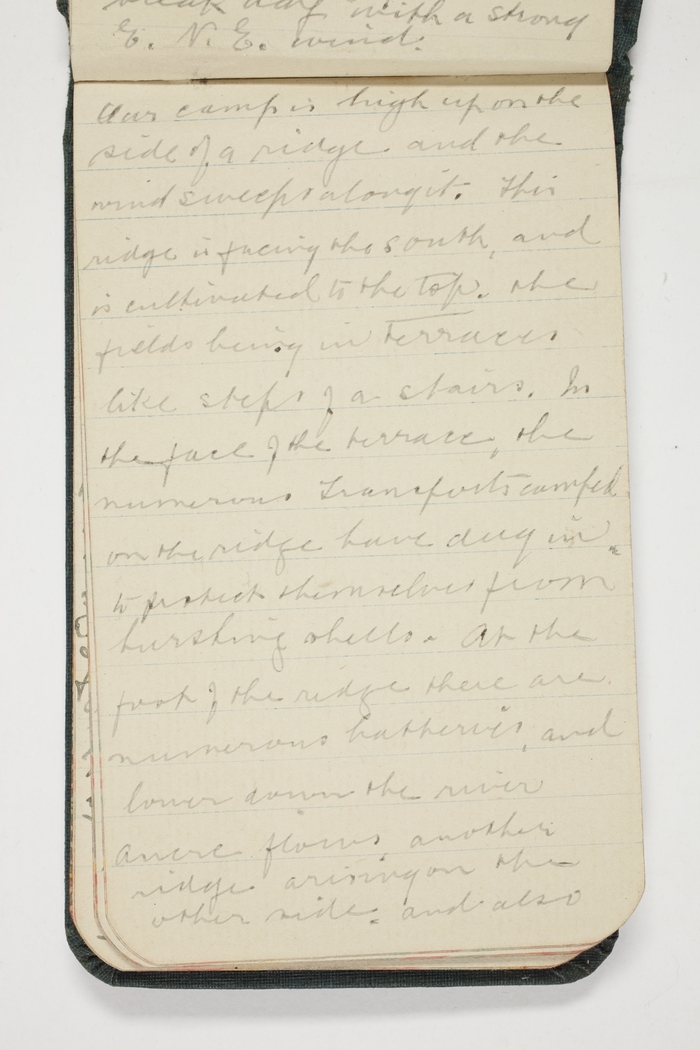 break day with a strong
E. N. E. wind.
Our camp is high up on the
side of a ridge and the
wind sweeps along it. This
ridge is facing the south, and
is cultivated to the top. the
fields being in terraces
like steps of a stairs. In
the face of the terrace, the
numerous Transports camped
on the ridge have dug in
to protect themselves from
bursting shells. At the
foot of the ridge there are
numerous batteries, and
lower down the river
Ancre flows another
ridge arising on the
other side. and also